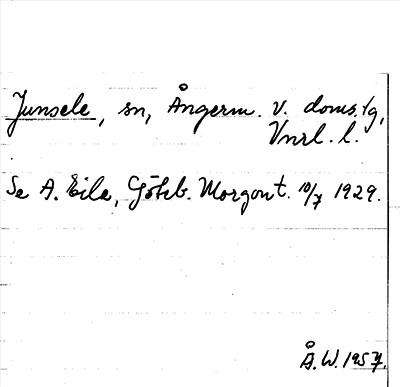 Junsele, sn, Ångerm. v. doms.tg,
Vnrl. l.
Se A. Eile, Göteb. Morgont. 10/7 1929.
Å.W. 1957.